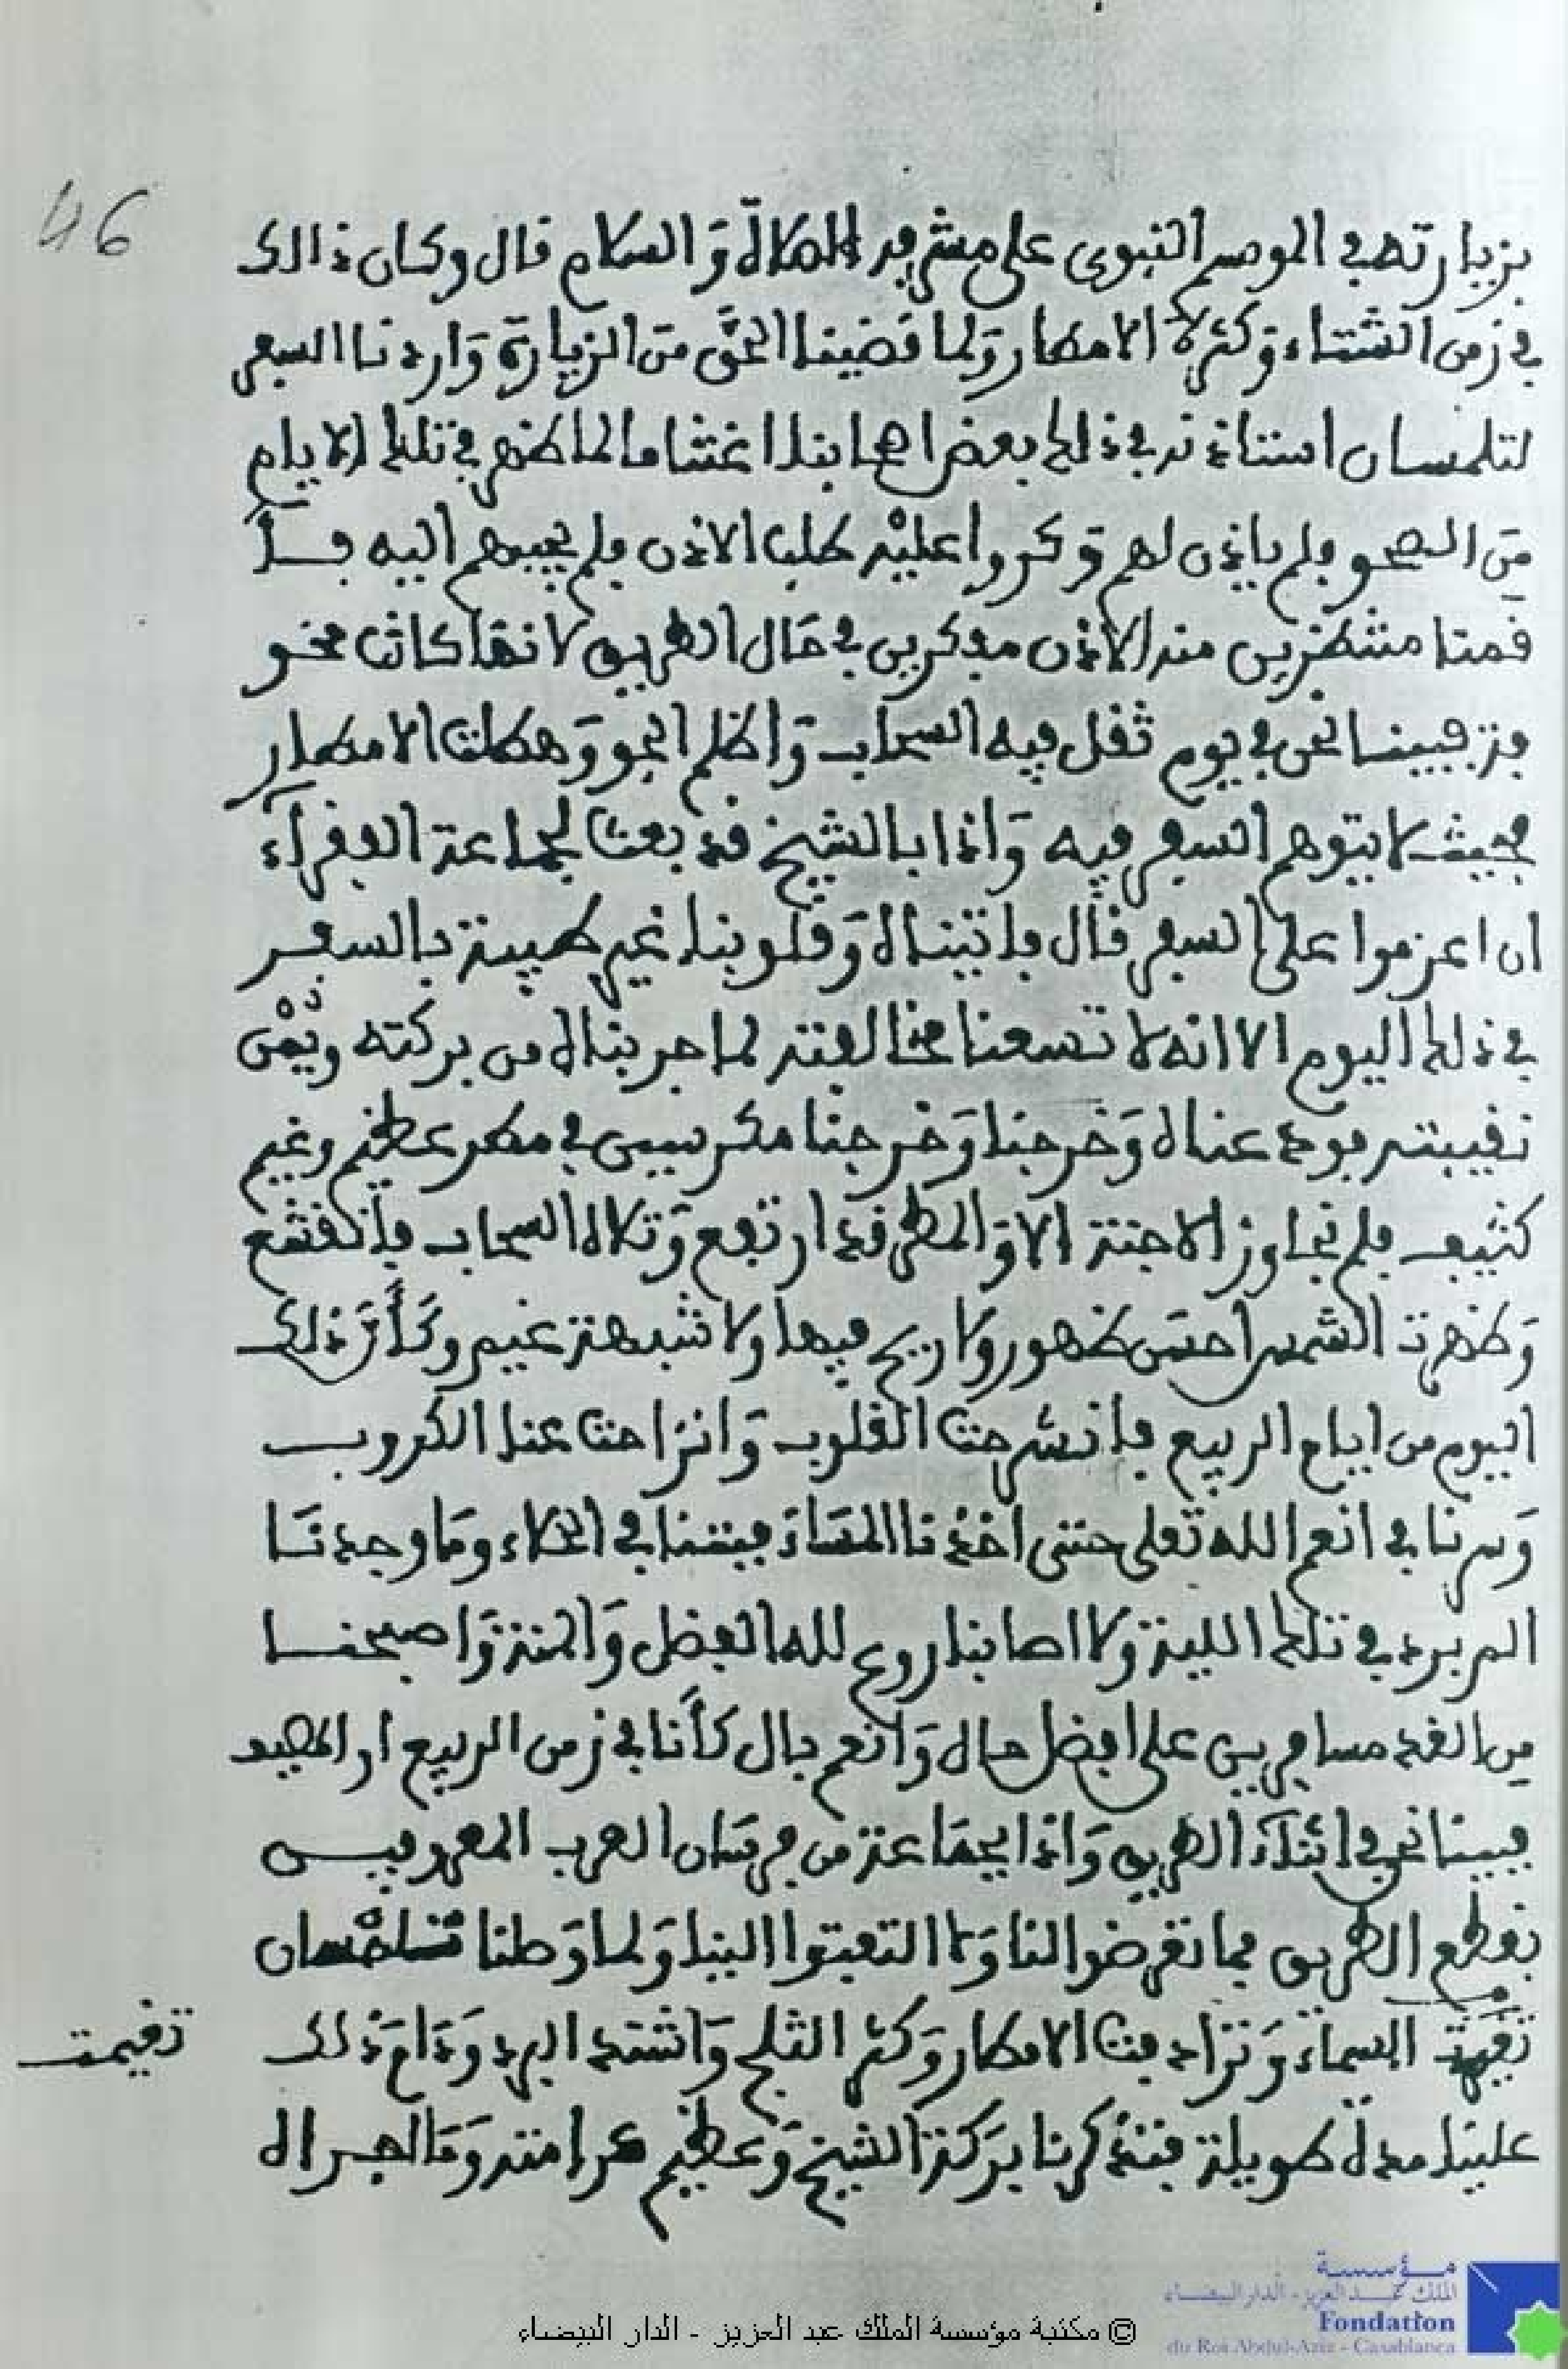 46
بزيارته في الموسم النبوي على مشرفه الصلاة والسلام قال وكان ذالك
في زمن الشتاء وكثرة الامطار ولما قضينا الحق من الزيارة واردنا السفر
لتلمسان استاذنه في ذلك بعض اصحابنا اغتناما لما ظهر في تلك الايام
من الصحو فلم ياذن لهم وكرروا عليه طلب الاذن فلم يجبهم اليه فــلا
قمنا منتظرين منه الاذن مفكرين في حال الطريق لانها كانت مخو
فة فبينما نحن في يوم ثقل فيه السحاب واظلم الجو وهطلت الامطار
بحيث لا يتوهم السفر فيه واذا بالشيخ قد بعث لجماعة الفقراء
ان اعزموا على السفر قال فاتيناه وقلوبنا غير طيبة بالسفر
في ذلك اليوم الا انه لا تسعنا مخالفته لما جربناه من بركته ويمن
نقيبته فودعناه وخرجنا وخرجنا مكرسين في مطر عظيم وغيم
كثيف فلم نجاوز الاجنة الا والمطر قد ارتفع وتلاه السحاب فانقشع
وظهرت الشمس احسن ظهور ولا ريح فيها ولا شبهة غيم وكأن ذلك
اليوم من ايام الربيع فانشرحت القلوب وانزاحت عنا الكروب
وسرنا في انعم الله تعلى حتى اخذنا المساء فبتنا في الخلاء وما وجدنا
الم برد في تلك الليلة ولا اصابنا روع لله الفضل والمنة واصبحنا
من الغد مسافرين على افضل حال وانعم بال كأنا في زمن الربيع او المصيف
فبينا نحن في اثناء الطريق واذا بجماعة من فرسان العرب المعروفيــن
بقطع الطريق فما تعرضوا لنا ولا التفتوا الينا ولما وطنا تلمسان
تغيرت السماء وترادفت الامطار وكثر الثلج واشتد البرد ودام ذلك
تغيمت
علينا مدة طويلة فتذكرنا بركة الشيخ وعظيم كرامته وما اجراه
مؤسسة
الملك عبد العزيز - الدار البيضاء
Fondation
du Roi Abdul-Aziz - Casablanca
© مكتبة مؤسسة الملك عبد العزيز - الدار البيضاء